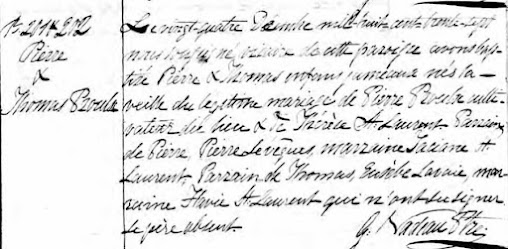 Pierre
&
Thomas Proulx
Le vingt-quatre mil huit cent trente sept
nous soussigné vicaire de cette paroisse avons bap-
tisé Pierre & Thomas enfans jumeaux nés la
veille du légitime mariage de Pierre Proulx culti-
vateur de ce lieu & de Thérèse St Laurent Parrain
de Pierre, Pierre Levêques, marraine St
Laurent, Parrain de Thomas, Eusèbe Lavoie, mar-
raine St Laurent qui n'ont su signer
le père absent
G. Nadeau Ptre